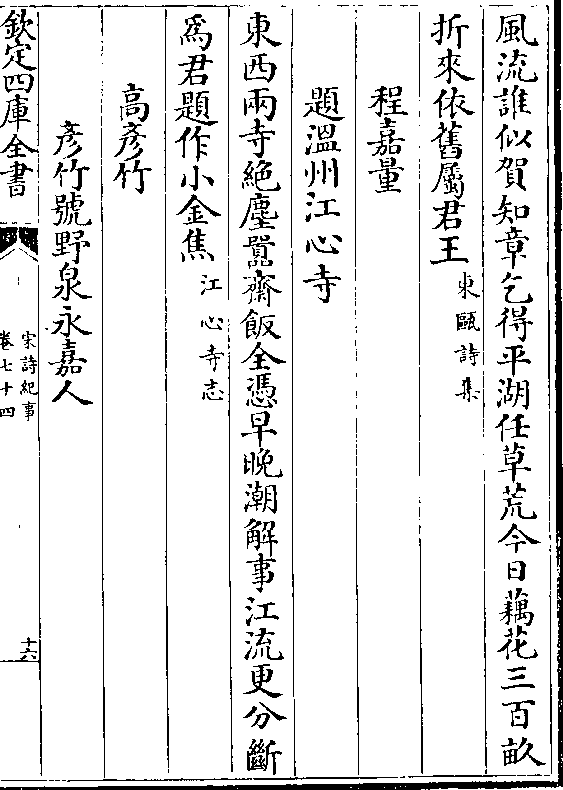 風流誰似賀知章乞得平湖任草荒今日藕花三百畝
折來依舊屬君王東甌詩集
程嘉量
題溫州江心寺
東西兩寺絶塵囂齋飯全憑早晚潮解事江流更分斷
為君題作小金焦江心寺志
高彦竹
彦竹號野泉永嘉人
欽定四庫全書
宋詩紀事
卷七十四
十六